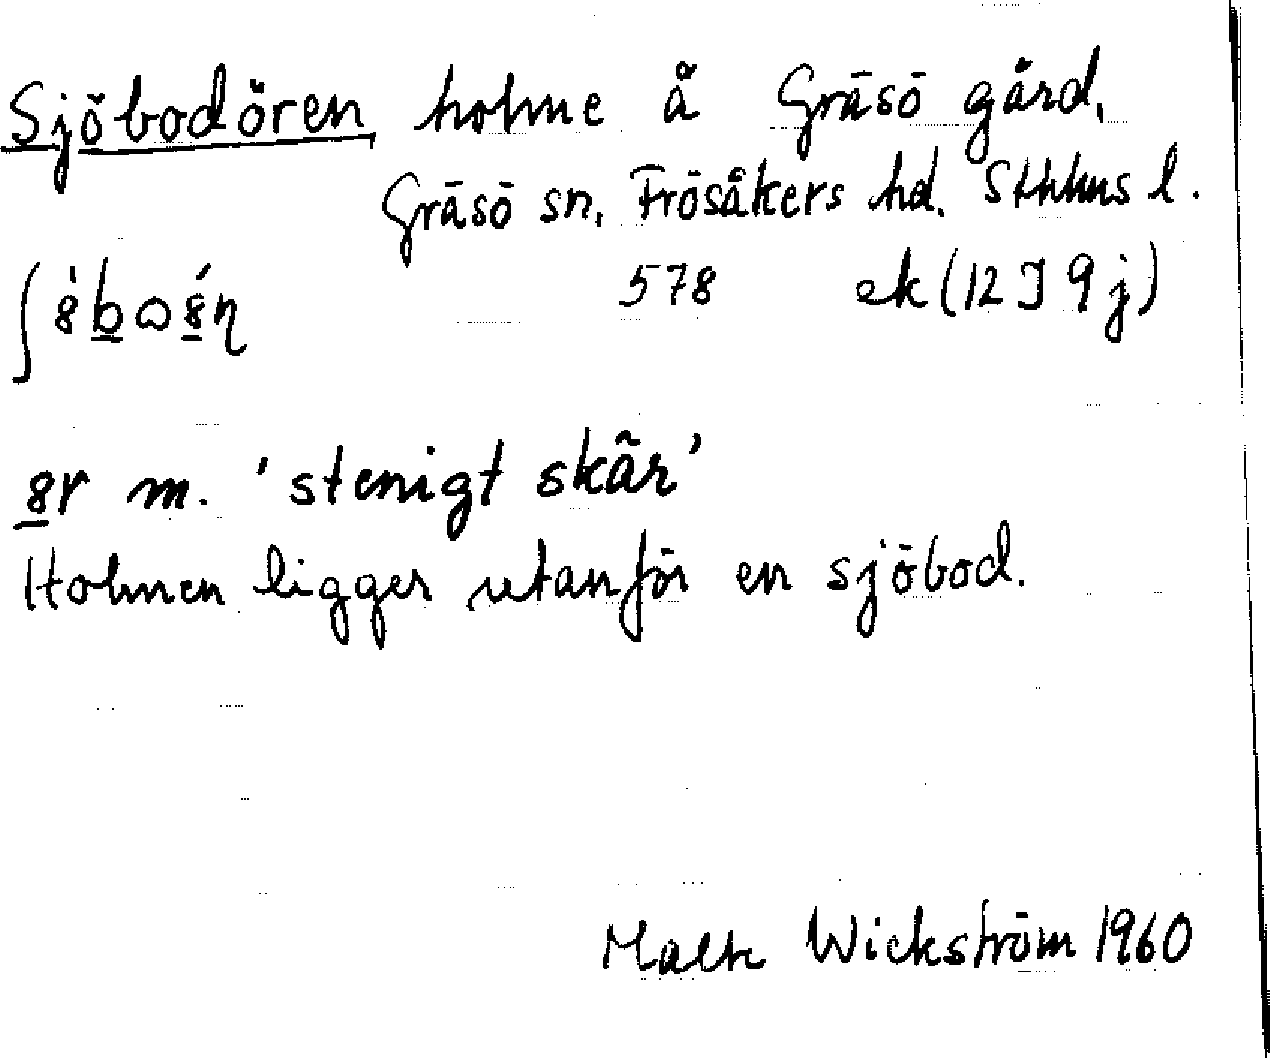 Sjöbodören holme å Gräsö gård,
Gräsö sn, Frösåkers hd. Sthlms l.
578 ek (12 I 9 j)
m. 'stenigt skär'
Holmen ligger utanför en sjöbod.
Malte Wickström 1960